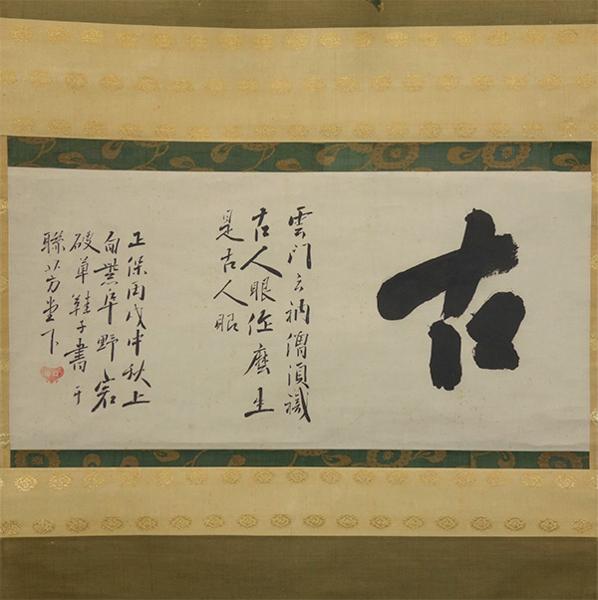 古
雲門云衲僧須識
古人眼作麼生
是古人眼
正保丙戌中秋上
旬 野宕
破草鞋子書于
聯芳堂下